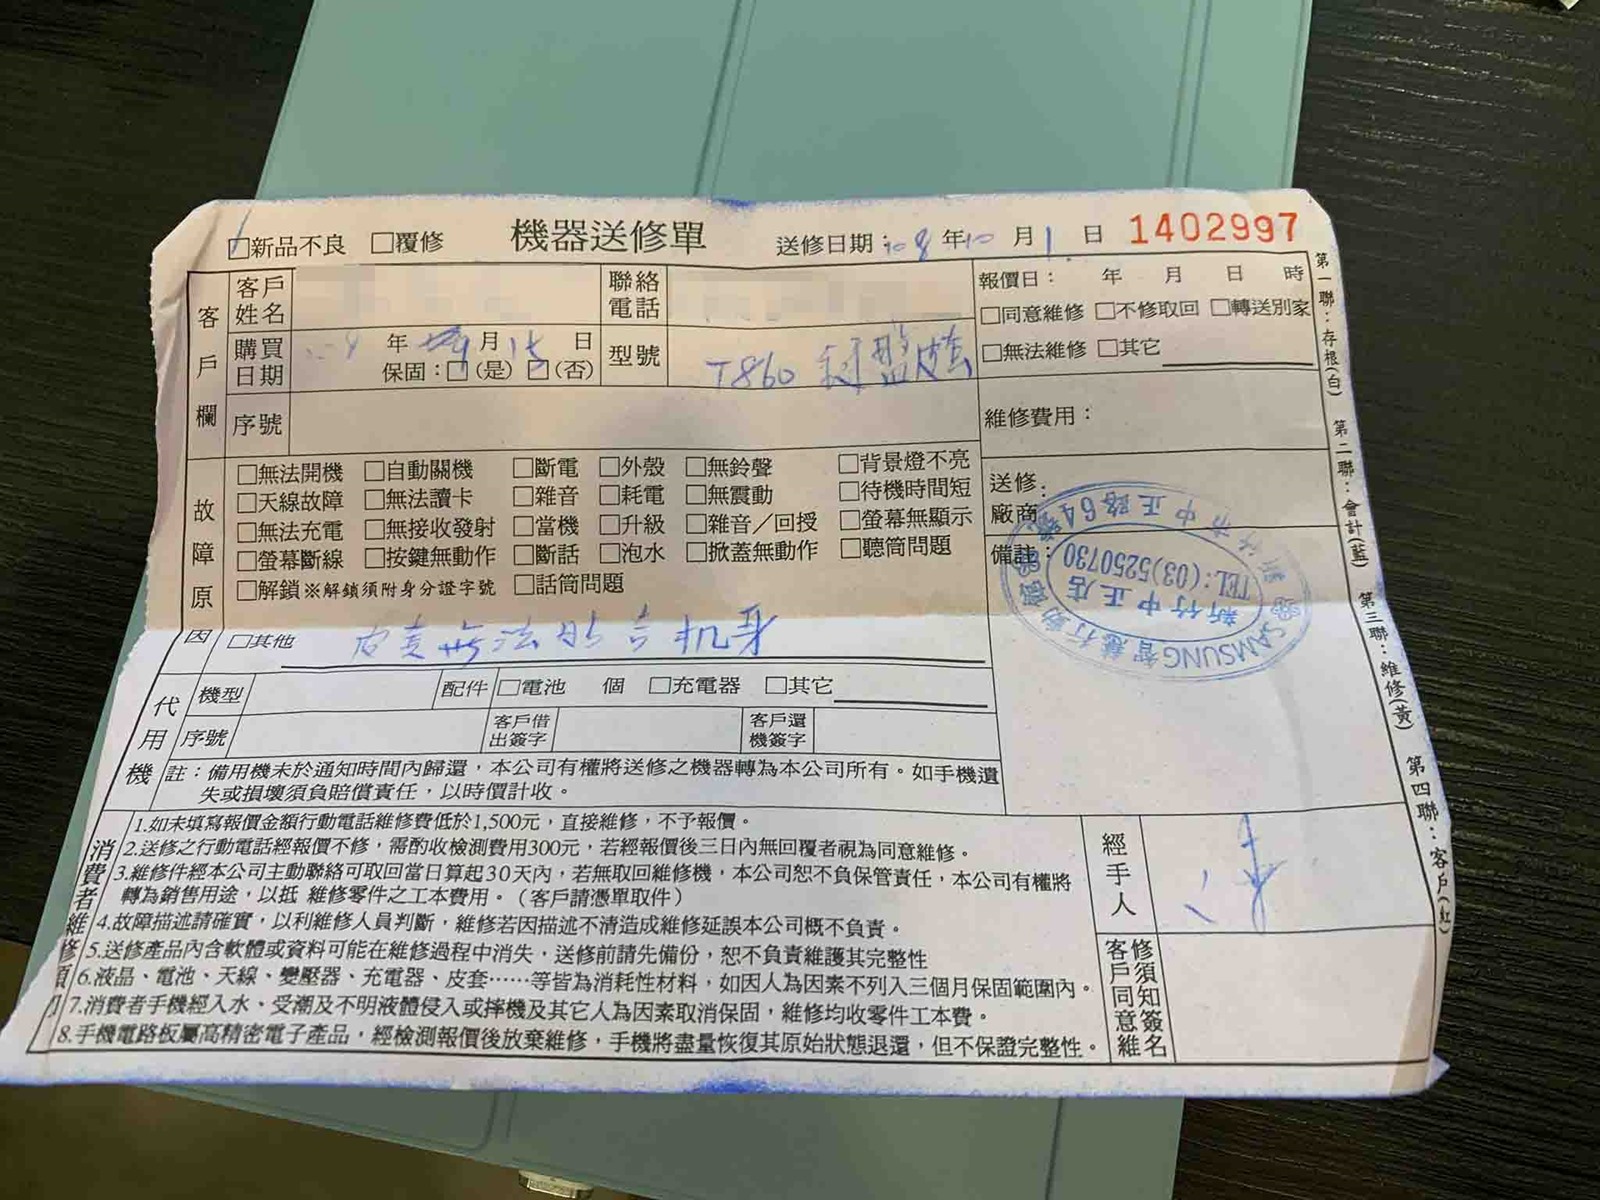 □新品不良 □覆修 機器送修單 送修日期：108年10月1日 1402997
客戶欄
客戶姓名
聯絡電話
購買日期 年 9月15日
保固：□(是) □(否)
型號 T860 鍵盤皮套
序號
報價日： 年 月 日 時
□同意維修 □不修取回 □轉送別家
□無法維修 □其它
維修費用：
送修廠商：
備註：
故障原因
□無法開機 □自動關機 □斷電 □外殼 □無鈴聲 □背景燈不亮
□天線故障 □無法讀卡 □雜音 □耗電 □無震動 □待機時間短
□無法充電 □無接收發射 □當機 □升級 □雜音／回授 □螢幕無顯示
□螢幕斷線 □按鍵無動作 □斷話 □泡水 □掀蓋無動作 □聽筒問題
□解鎖※解鎖須附身分證字號 □話筒問題
□其他 皮套無法貼合机身
SAMSUNG智慧行動館
新竹中正店
TEL:(03)5250730
市中正路64號
代用機
機型 配件 □電池 個 □充電器 □其它
序號 客戶借出簽字 客戶還機簽字
註：備用機未於通知時間內歸還，本公司有權將送修之機器轉為本公司所有。如手機遺
失或損壞須負賠償責任，以時價計收。
消費者維修須
1.如未填寫報價金額行動電話維修費低於1,500元，直接維修，不予報價。
2.送修之行動電話經報價不修，需酌收檢測費用300元，若經報價後三日內無回覆者視為同意維修。
3.維修件經本公司主動聯絡可取回當日算起30天內，若無取回維修機，本公司恕不負保管責任，本公司有權將
轉為銷售用途，以抵 維修零件之工本費用。（客戶請憑單取件）
4.故障描述請確實，以利維修人員判斷，維修若因描述不清造成維修延誤本公司概不負責。
5.送修產品內含軟體或資料可能在維修過程中消失，送修前請先備份，恕不負責維護其完整性
6.液晶、電池、天線、變壓器、充電器、皮套……等皆為消耗性材料，如因人為因素不列入三個月保固範圍內。
7.消費者手機經入水、受潮及不明液體侵入或摔機及其它人為因素取消保固，維修均收零件工本費。
8.手機電路板屬高精密電子產品，經檢測報價後放棄維修，手機將盡量恢復其原始狀態退還，但不保證完整性。
經手人
客戶同意維修須知簽名
第一聯：存根(白) 第二聯：會計(藍) 第三聯：維修(黃) 第四聯：客戶(紅)